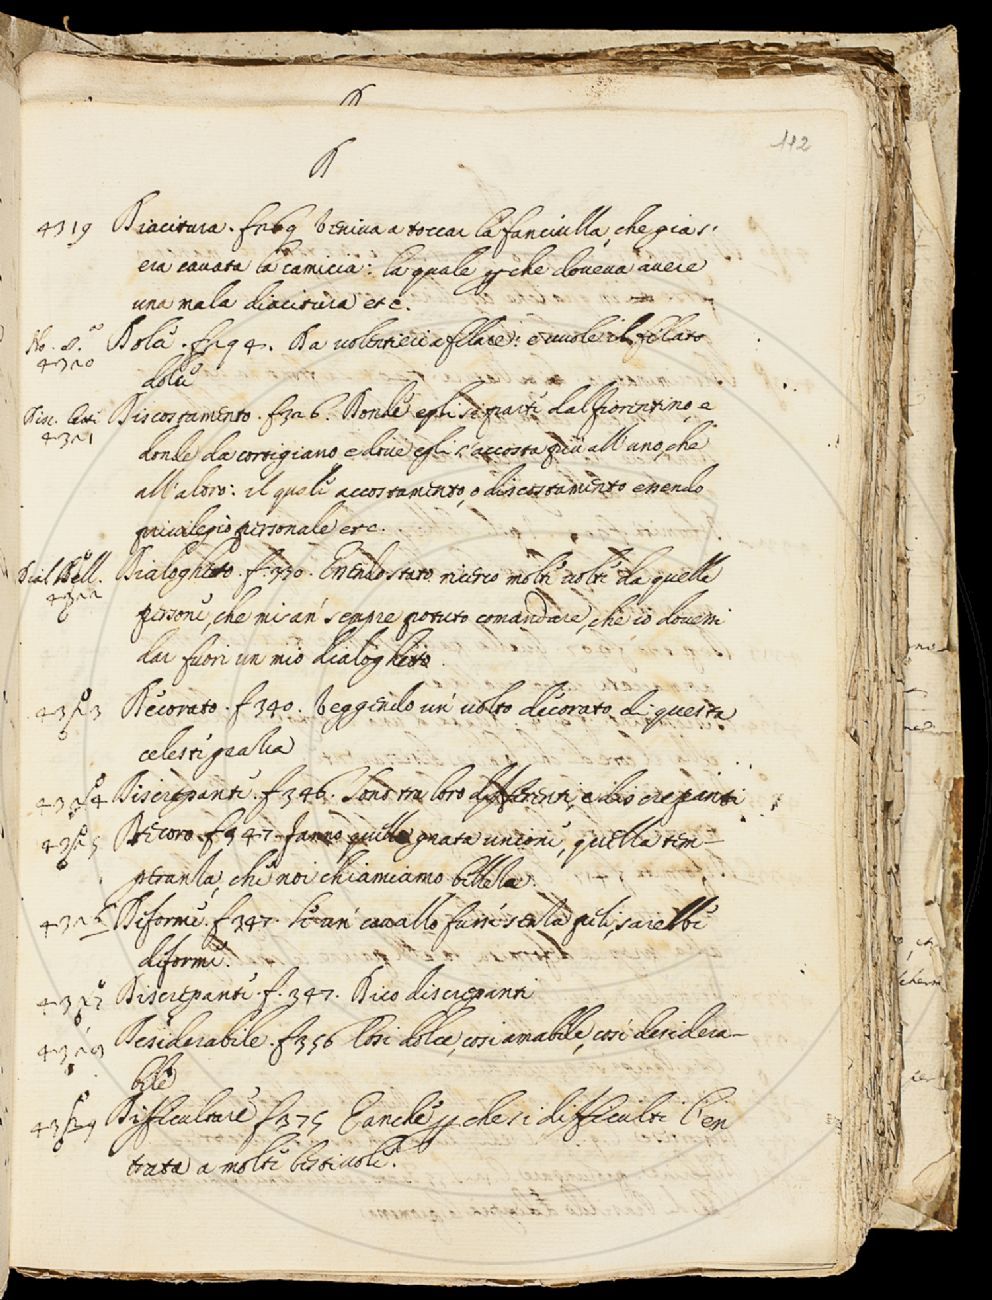 112
D
4319 Diacitura. f. 269 Veniva a toccar la fanciulla, che gia s'
era cavata la camicia: la quale perche doveva avere
una mala diacitura etc.
4320 Dola. f. 294. Da volentieri a filare: e vuole il filato
4321 Discostamento. f. 326. Donde egli si parti dal fiorentino, e
donde da cortigiano e dove egli s'accosta più all'uno, che
all'altro: il quale accostamento, o discostamento essendo
privilegio personale etc.
Dial. Bell. 4322 Dialoghetto. f. 330. Essendo stato ricerco molte volte da quelle
persone, che mi can' sempre potuto comandare, che io dovessi
dar fuori un mio dialoghetto.
4323 Decorato. f. 340. Veggendo un' volto decorato di questa
celeste grazia
4324 Discrepanti. f. 346. Sono tra loro differenti, e discrepanti
4325 Decoro. f. 347. fanno quella grata unione, quella tem-
peranza, che noi chiamiamo bellezza.
4326 Diforme. f. 347. Se un' cavallo fussi senza peli, sarebbe
diforme.
4327 Discrepanti. f. 347. Dico discrepanti
4328 Desiderabile. f. 356 Cosi dolce, cosi amabile, cosi desidera-
bile
4329 Difficultare f. 375 E anche perche si difficulti l'en
trata a molte bestivole.